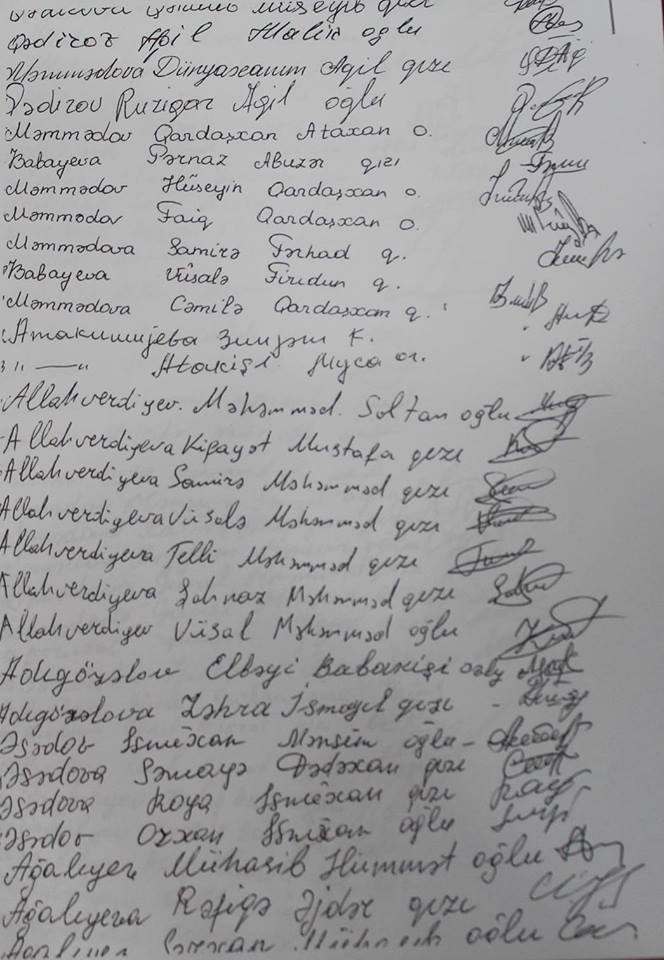 Qədirov Aqil Xalıq oğlu
Məmmədova Dünyaxanım Aqil qızı
Qədirov Ruzigar Aqil oğlu
Məmmədov Qardaşxan Ataxan o.
Babayeva Pərnaz Abuzər qızı
Məmmədov Hüseyin Qardaşxan o.
Məmmədov Faiq Qardaşxan o.
Məmmədova Samirə Fərhad q.
Babayeva Vüsalə Firidun q.
Məmmədova Cəmilə Qardaşxan q.
К.
Atakişi Муса
Allahverdiyev. Məhəmməd. Soltan oğlu
Allahverdiyeva Kifayət Mustafa qızı
Allahverdiyeva Samirə Məhəmməd qızı
Allahverdiyeva Vüsalə Məhəmməd qızı
Allahverdiyeva Telli Məhəmməd qızı
Allahverdiyeva Şahnaz Məhəmməd qızı
Allahverdiyev Vüsal Məhəmməd oğlu
Adıgözəlov Elbəyi Babakişi
Adıgözəlova Zəhra İsmayıl qızı
Əsədov Ismixan Mənsim oğlu
Əsədova Səmayə Dədəxan qızı
Əsədova Roya Ismixan qızı
Əsədov Orxan Ismixan oğlu
Ağalıyev Mühasib Hümmət oğlu
Ağalıyeva Rəfiqə Əjdər qızı
oğlu